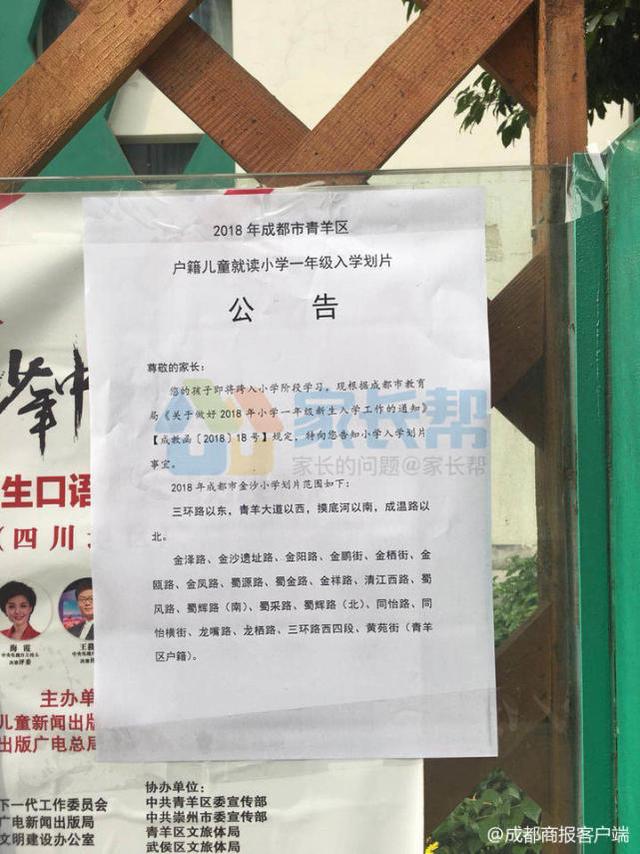 2018 年成都市青羊区
户籍儿童就读小学一年级入学划片
公 告
尊敬的家长：
您的孩子即将跨入小学阶段学习，现根据成都市教育
局《关于做好 2018 年小学一年级新生入学工作的通知》
【成教函〔2018〕18 号】规定，特向您告知小学入学划片
事宜。
2018 年成都市金沙小学划片范围如下：
三环路以东，青羊大道以西，摸底河以南，成温路以
北。
金泽路、金沙遗址路、金阳路、金鹏街、金栖街、金
瓯路、金凤路、蜀源路、蜀金路、金祥路、清江西路、蜀
风路、蜀辉路（南）、蜀采路、蜀辉路（北）、同怡路、同
怡横街、龙嘴路、龙栖路、三环路西四段、黄苑街（青羊
区户籍）。
家长帮
家长的问题@家长帮
少年中
生口语
（四川
海霞
中央电视台主持人
决赛评委
主办单
儿童新闻出版
出版广电总局
下一代工作委员会
广电新闻出版局
文明建设办公室
协办单位：
中共青羊区委宣传部
中共崇州市委宣传部
青羊区文旅体局
武侯区文旅体局
@成都商报客户端